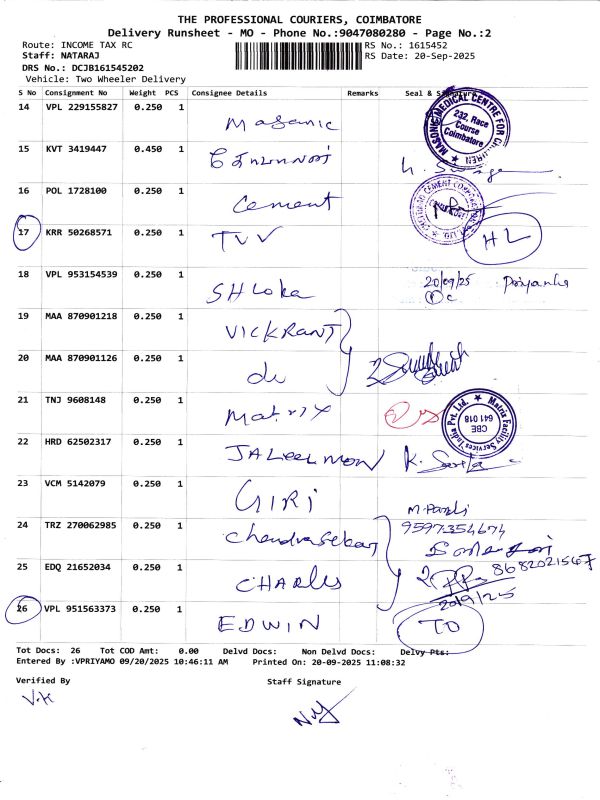 THE PROFESSIONAL COURIERS, COIMBATORE
Delivery Runsheet - MO - Phone No.:9047080280 - Page No.:2
Route: INCOME TAX RC RS No.: 1615452
Staff: NATARAJ RS Date: 20-Sep-2025
DRS No.: DCJB161545202
Vehicle: Two Wheeler Delivery
S No Consignment No Weight PCS Consignee Details Remarks Seal & Signature
14 VPL 229155827 0.250 1 Masonic
MASONIC MEDICAL CENTRE FOR CHILDREN
232, Race
Course
Coimbatore
15 KVT 3419447 0.450 1
16 POL 1728100 0.250 1 Cement
17 KRR 50268571 0.250 1 TVV HL
18 VPL 953154539 0.250 1 SHLoka 20/09/25 Priyanka
19 MAA 870901218 0.250 1 VICKRANT
20 MAA 870901126 0.250 1 do 2
21 TNJ 9608148 0.250 1 Matrix
Matrix Facility Services India Pvt. Ltd.
CBE
641 018
22 HRD 62502317 0.250 1 JALEELMON K.
23 VCM 5142079 0.250 1 GIRI
24 TRZ 270062985 0.250 1 Chandrasekar 9597354674
25 EDQ 21652034 0.250 1 CHARLES 8682021567
26 VPL 951563373 0.250 1 EDWIN TD
Tot Docs: 26 Tot COD Amt: 0.00 Delvd Docs: Non Delvd Docs: Delvy Pts:
Entered By :VPRIYAMO 09/20/2025 10:46:11 AM Printed On: 20-09-2025 11:08:32
Verified By Staff Signature
V.K